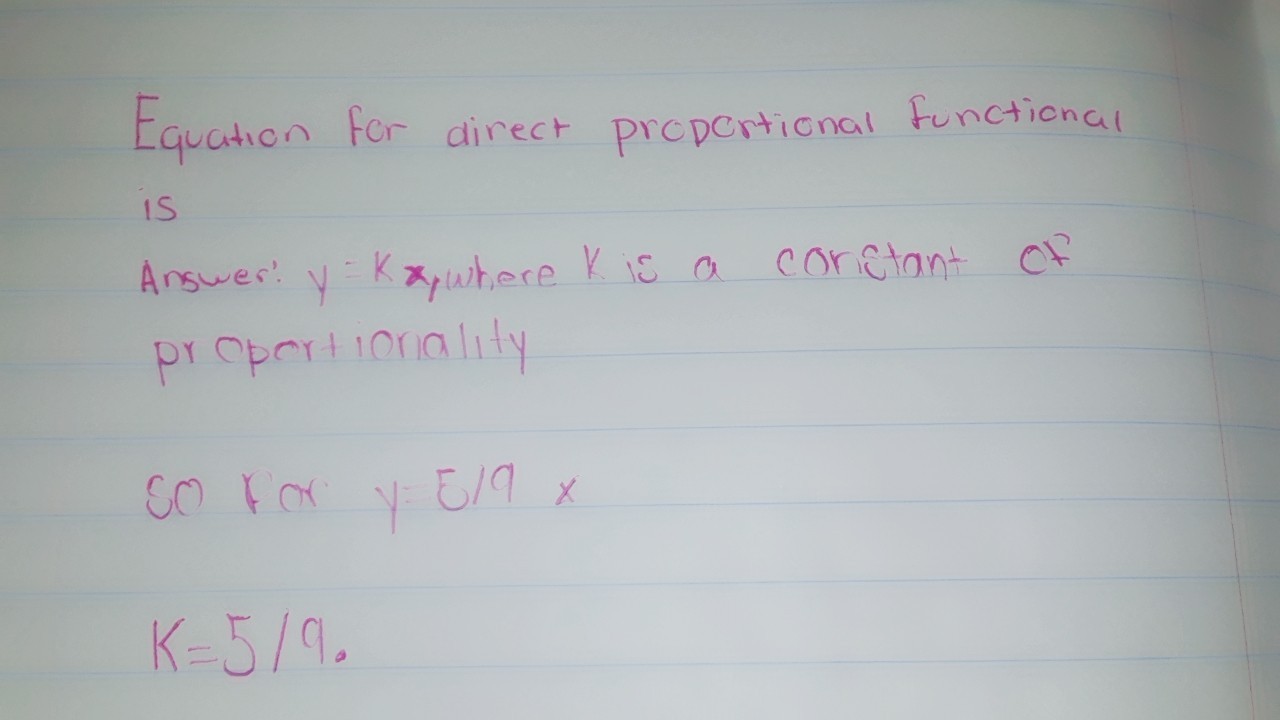 Equation for direct proportional functional
is
Answer: y = K x, where K is a constant of
proportionality
so For y = 5/9 x
K = 5/9.